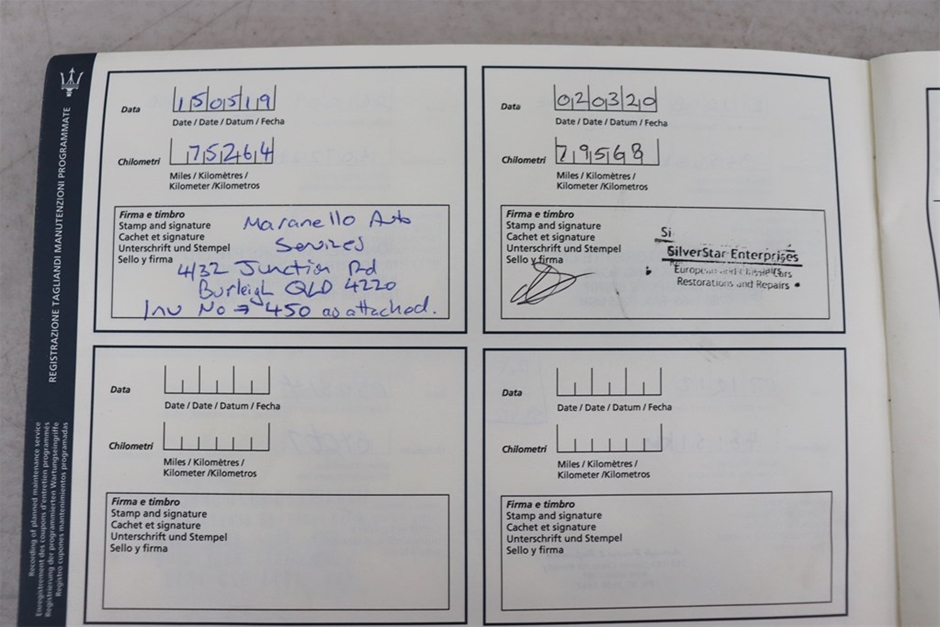 REGISTRAZIONE TAGLIANDI MANUTENZIONI PROGRAMMATE
Recording of planned maintenance service
Enregistrement des coupons d'entretien programmés
Registrierung der programmierten Wartungseingriffe
Registro cupones mantenimientos programadas
Data 150519
Date / Date / Datum / Fecha
Chilometri 75264
Miles / Kilomètres /
Kilometer /Kilometros
Firma e timbro
Stamp and signature
Cachet et signature
Unterschrift und Stempel
Sello y firma
Maranello Auto
Services
4/32 Junction Rd
Burleigh QLD 4220
Inv No → 450 as attached.
Data 020320
Date / Date / Datum / Fecha
Chilometri 79568
Miles / Kilomètres /
Kilometer /Kilometros
Firma e timbro
Stamp and signature
Cachet et signature
Unterschrift und Stempel
Sello y firma
SilverStar Enterprises
European and Classic Cars
Restorations and Repairs
Data
Date / Date / Datum / Fecha
Chilometri
Miles / Kilomètres /
Kilometer /Kilometros
Firma e timbro
Stamp and signature
Cachet et signature
Unterschrift und Stempel
Sello y firma
Data
Date / Date / Datum / Fecha
Chilometri
Miles / Kilomètres /
Kilometer /Kilometros
Firma e timbro
Stamp and signature
Cachet et signature
Unterschrift und Stempel
Sello y firma